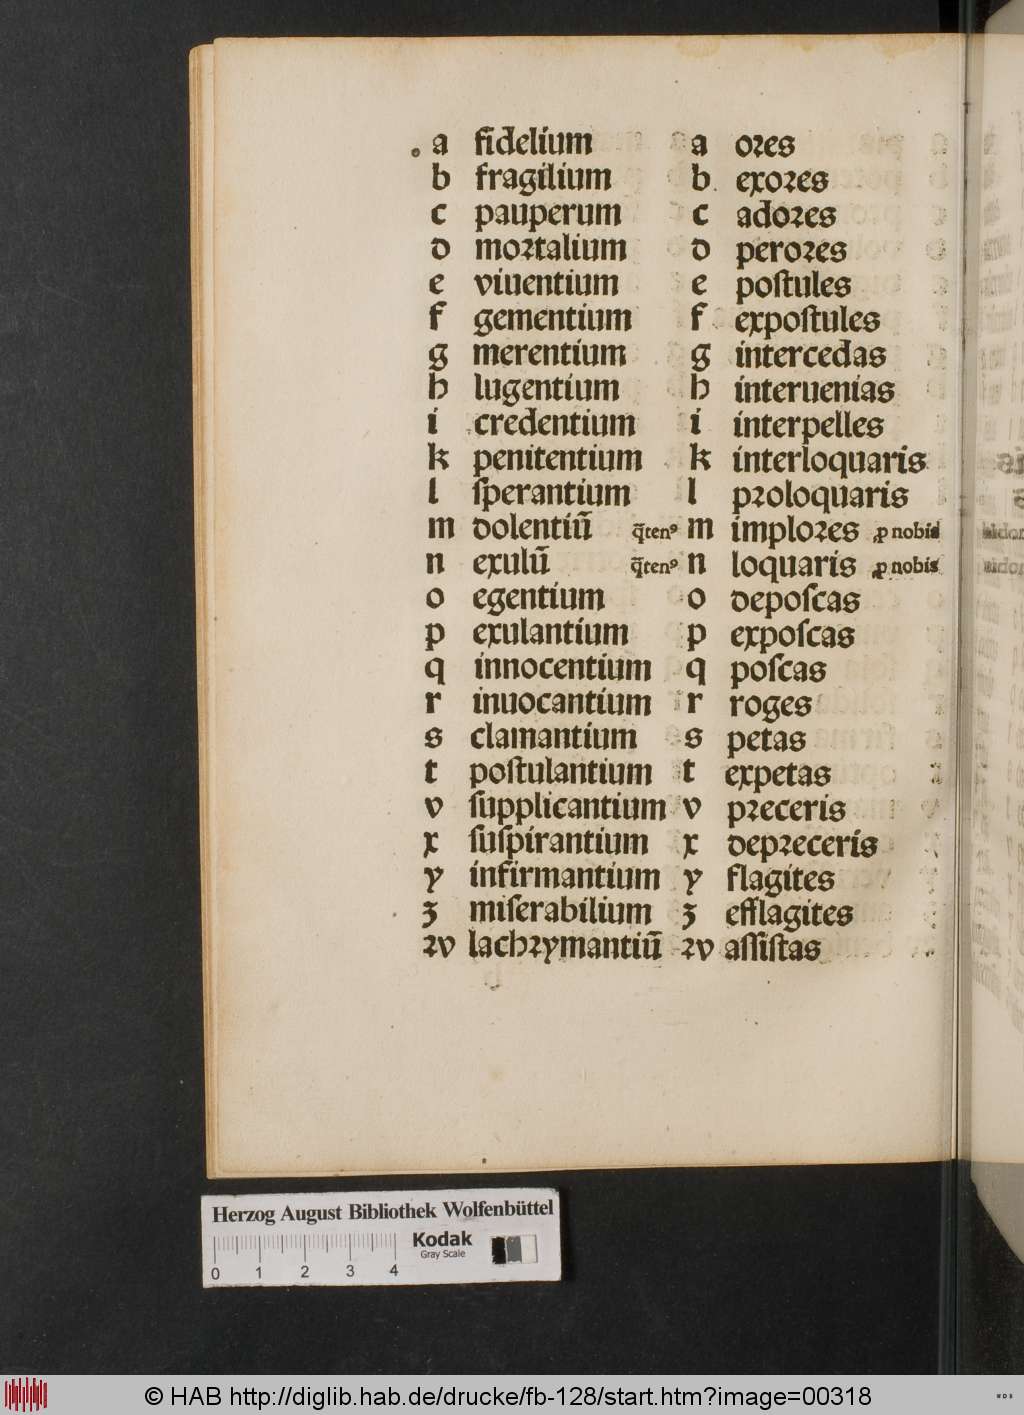 a fidelium a oꝛes
b fragilium b exoꝛes
c pauperum c adoꝛes
d moꝛtalium d peroꝛes
e viuentium e poſtules
f gementium f expoſtules
g merentium g intercedas
h lugentium h interuenias
i credentium i interpelles
k penitentium k interloquaris
l ſperantium l pꝛoloquaris
m dolentiū q̄tenꝰ m imploꝛes ꝓ nobis
n exulū q̄tenꝰ n loquaris ꝓ nobis
o egentium o depoſcas
p exulantium p expoſcas
q innocentium q poſcas
r inuocantium r roges
s clamantium s petas
t poſtulantium t expetas
v ſupplicantium v pꝛeceris
x ſuſpirantium x depꝛeceris
y infirmantium y flagites
ʒ miſerabilium ʒ efflagites
ꝛv lachꝛymantiū ꝛv aſſiſtas
Herzog August Bibliothek Wolfenbüttel
Kodak
Gray Scale
0 1 2 3 4
© HAB http://diglib.hab.de/drucke/fb-128/start.htm?image=00318